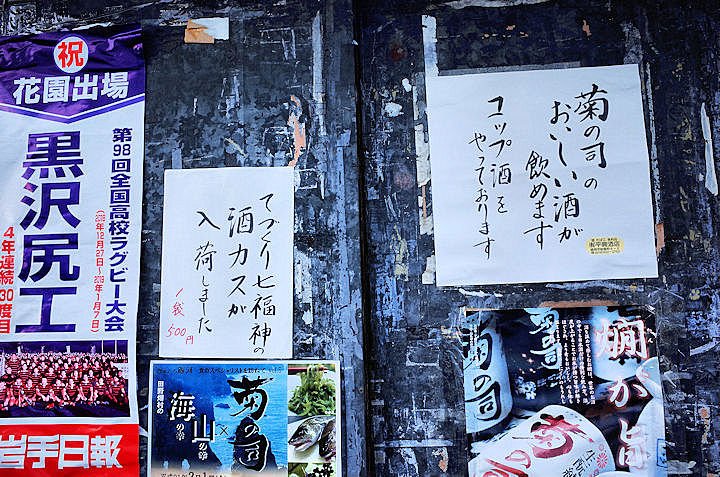 祝
花園出場
第98回全国高校ラグビー大会
黒沢尻工
4年連続30度目
岩手日報
てづくり七福神の
酒カスが
入荷しました
1袋
500円
田野畑村の
海の幸
山の幸
×
菊の司
菊の司の
おいしい酒が
飲めます
コップ酒を
やっております
菊の司
菊の司
燗が旨
菊の司